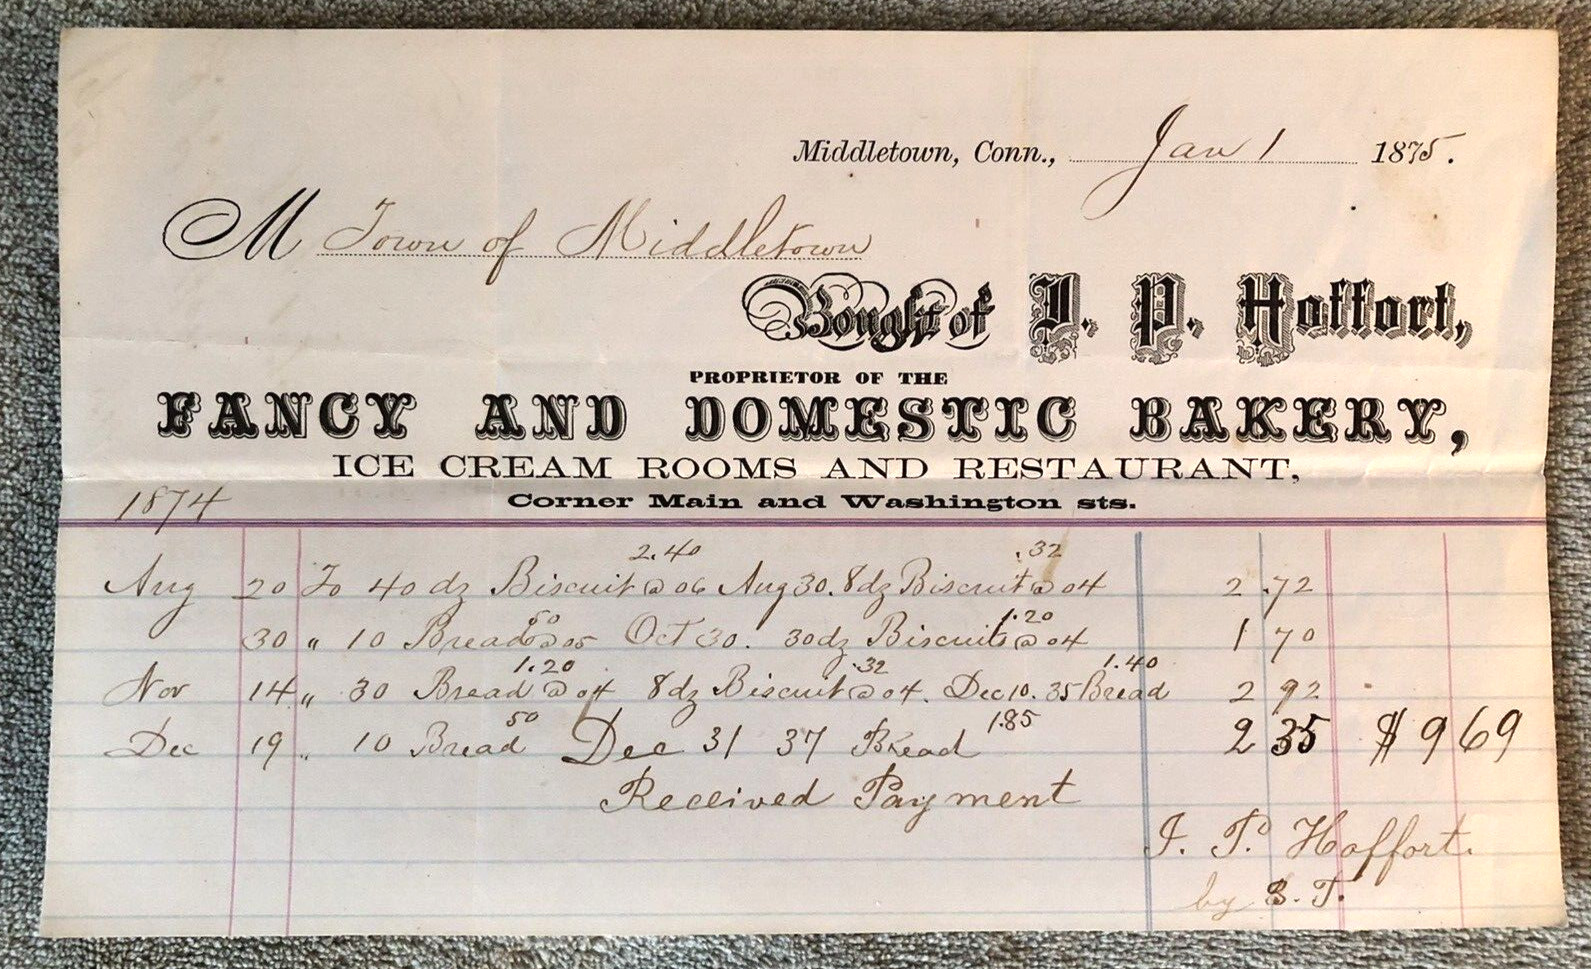 Middletown, Conn., Jan 1 1875.
M Town of Middletown
Bought of I. P. Hoffort,
PROPRIETOR OF THE
FANCY AND DOMESTIC BAKERY,
ICE CREAM ROOMS AND RESTAURANT,
Corner Main and Washington sts.
1874
2.40 .32
Aug 20 To 40 dz Biscuit @ 06 Aug 30. 8dz Biscuit @ 04 2.72
50 1.20
30 " 10 Bread @ 05 Oct 30. 30dz Biscuits @ 04 1 70
1.20 .32 1.40
Nov 14 " 30 Bread @ 04 8dz Biscuit @ 04. Dec 10. 35 Bread 2 92
50 1.85
Dec 19 " 10 Bread Dec 31 37 Bread 2 35 $ 9 69
Received Payment
I. P. Hoffort.
by S. T.